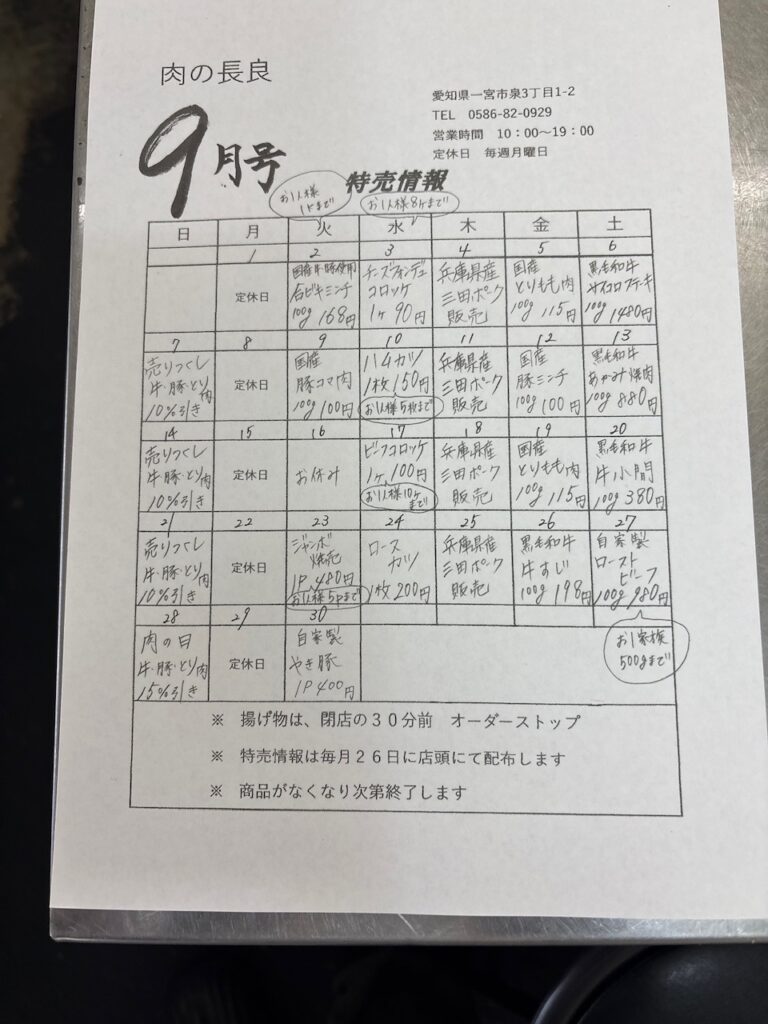 肉の長良
愛知県一宮市泉3丁目1-2
TEL 0586-82-0929
営業時間 10：00～19：00
定休日 毎週月曜日
9月号
特売情報
お1人様
1kまで
お1人様8ヶまで
日 月 火 水 木 金 土
1 2 3 4 5 6
定休日
国産牛・豚使用
合ビキミンチ
100g 168円
チーズフォンデュ
コロッケ
1ヶ 90円
兵庫県産
三田ポーク
販売
国産
とりもも肉
100g 115円
黒毛和牛
サイコロステーキ
100g 1480円
7 8 9 10 11 12 13
売りつくし
牛・豚・とり肉
10%引き
定休日
国産
豚コマ肉
100g 100円
ハムカツ
1枚 150円
お1人様5枚まで
兵庫県産
三田ポーク
販売
国産
豚ミンチ
100g 100円
黒毛和牛
あかみ焼肉
100g 880円
14 15 16 17 18 19 20
売りつくし
牛・豚・とり肉
10%引き
定休日
お休み
ビーフコロッケ
1ヶ 100円
お1人様10ヶ
まで
兵庫県産
三田ポーク
販売
国産
とりもも肉
100g 115円
黒毛和牛
牛小間
100g 380円
21 22 23 24 25 26 27
売りつくし
牛・豚・とり肉
10%引き
定休日
ジャンボ
焼売
1P 480円
お1人様5pまで
ロース
カツ
1枚 200円
兵庫県産
三田ポーク
販売
黒毛和牛
牛すじ
100g 198円
自家製
ロースト
ビーフ
100g 980円
お1家族
500gまで
28 29 30
肉の日
牛・豚・とり肉
15%引き
定休日
自家製
やき豚
1P 400円
※ 揚げ物は、閉店の３０分前 オーダーストップ
※ 特売情報は毎月２６日に店頭にて配布します
※ 商品がなくなり次第終了します